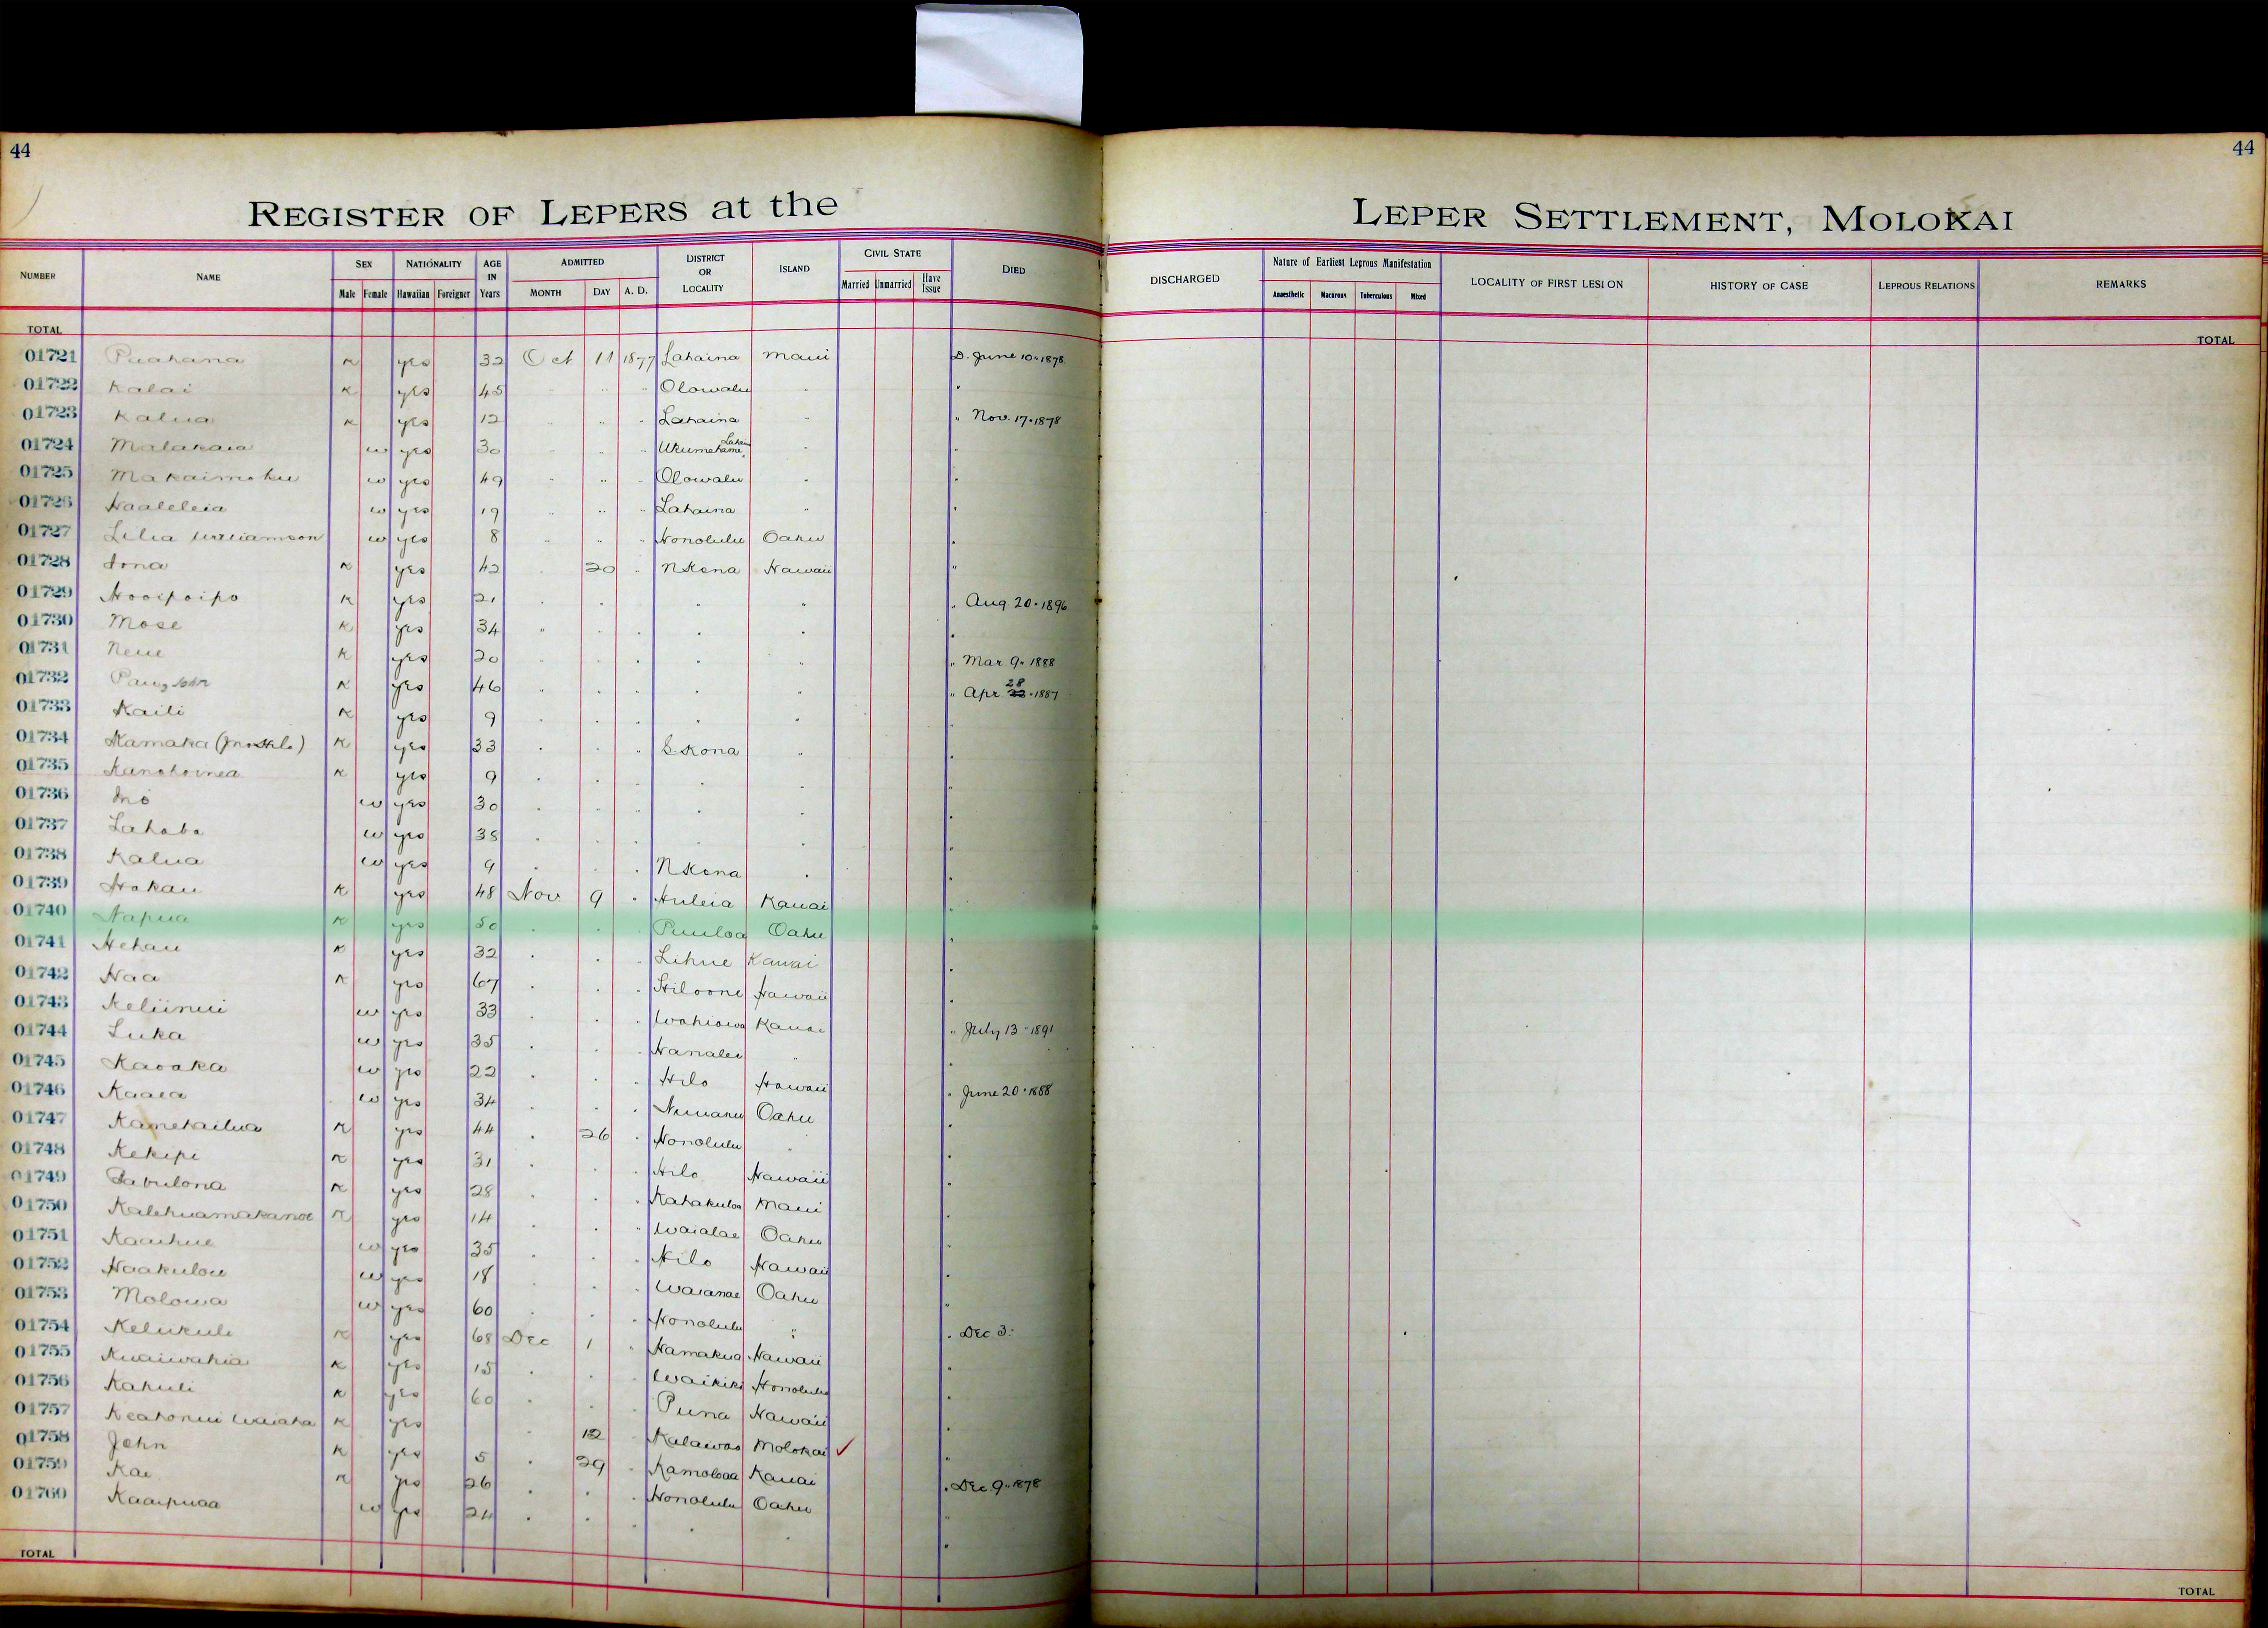 44
44
REGISTER OF LEPERS at the LEPER SETTLEMENT, MOLOKAI
NUMBER NAME SEX Male Female NATIONALITY Hawaiian Foreigner AGE IN Years ADMITTED MONTH DAY A. D. DISTRICT OR LOCALITY ISLAND CIVIL STATE Married Unmarried Have Issue DIED DISCHARGED Nature of Earliest Leprous Manifestation Anaesthetic Macurous Tuberculous Mixed LOCALITY OF FIRST LESION HISTORY OF CASE LEPROUS RELATIONS REMARKS
TOTAL TOTAL
01721 Puahana K yes 32 Oct 11 1877 Lahaina Maui D. June 10 " 1878
01722 Kalai K yes 45 " " " Olowalu " "
01723 Kalua K yes 12 " " " Lahaina " " Nov. 17 " 1878
01724 Malakaia w yes 30 " " " Ukumehame " "
01725 Makaimoku w yes 49 " " " Olowalu " "
01726 Haaleleia w yes 19 " " " Lahaina " "
01727 Lilia Williamson w yes 8 " " " Honolulu Oahu "
01728 Iona K yes 42 " 20 " N Kona Hawaii "
01729 Hooipoipo K yes 21 " " " " " Aug. 20 " 1896
01730 Mose K yes 34 " " " " " "
01731 Neue K yes 20 " " " " " " Mar. 9 " 1888
01732 John K yes 46 " " " " " " Apr 28 " 1887
01733 Kaili K yes 9 " " " " " "
01734 Kamaka K yes 33 " " " S. Kona " "
01735 K yes 9 " " " " " "
01736 w yes 30 " " " " " "
01737 w yes 38 " " " " " "
01738 Kalua w yes 9 " " " N Kona " "
01739 Hokau K yes 48 Nov 9 " Huleia Kauai "
01740 Napua K yes 50 " " " Puuloa Oahu "
01741 Hehau K yes 32 " " " Lihue Kauai "
01742 Naa K yes 67 " " " Hawaii "
01743 Keliinui w yes 33 " " " Wahiawa Kauai " July 13 " 1891
01744 Luka w yes 35 " " " Hanalei " "
01745 Kaoaka w yes 22 " " " Hilo Hawaii " June 20 " 1888
01746 Kaaea w yes 34 " " " Nuuanu Oahu "
01747 Kamekailua K yes 44 " 26 " Honolulu " "
01748 Kekipi K yes 31 " " " Hilo Hawaii "
01749 K yes 28 " " " Kahakuloa Maui "
01750 Kalehuamakanoe K yes 14 " " " Waialae Oahu "
01751 Kaaihue w yes 35 " " " Hilo Hawaii "
01752 Haakulou w yes 18 " " " Waianae Oahu "
01753 Molowa w yes 60 " " " Honolulu " " Dec 3.
01754 K yes 68 Dec 1 " Hamakua Hawaii "
01755 Kuaiwahia K yes 15 " " " Waikiki Honolulu "
01756 Kahuli K yes 60 " " " Puna Hawaii "
01757 K yes " 12 " Kalawao Molokai ✓ "
01758 John K yes 5 " 29 " Kamoloaa Kauai " Dec 9 " 1878
01759 Kae K yes 26 " " " Honolulu Oahu "
01760 Kaaipuaa w yes 24 " " " " " "
TOTAL TOTAL